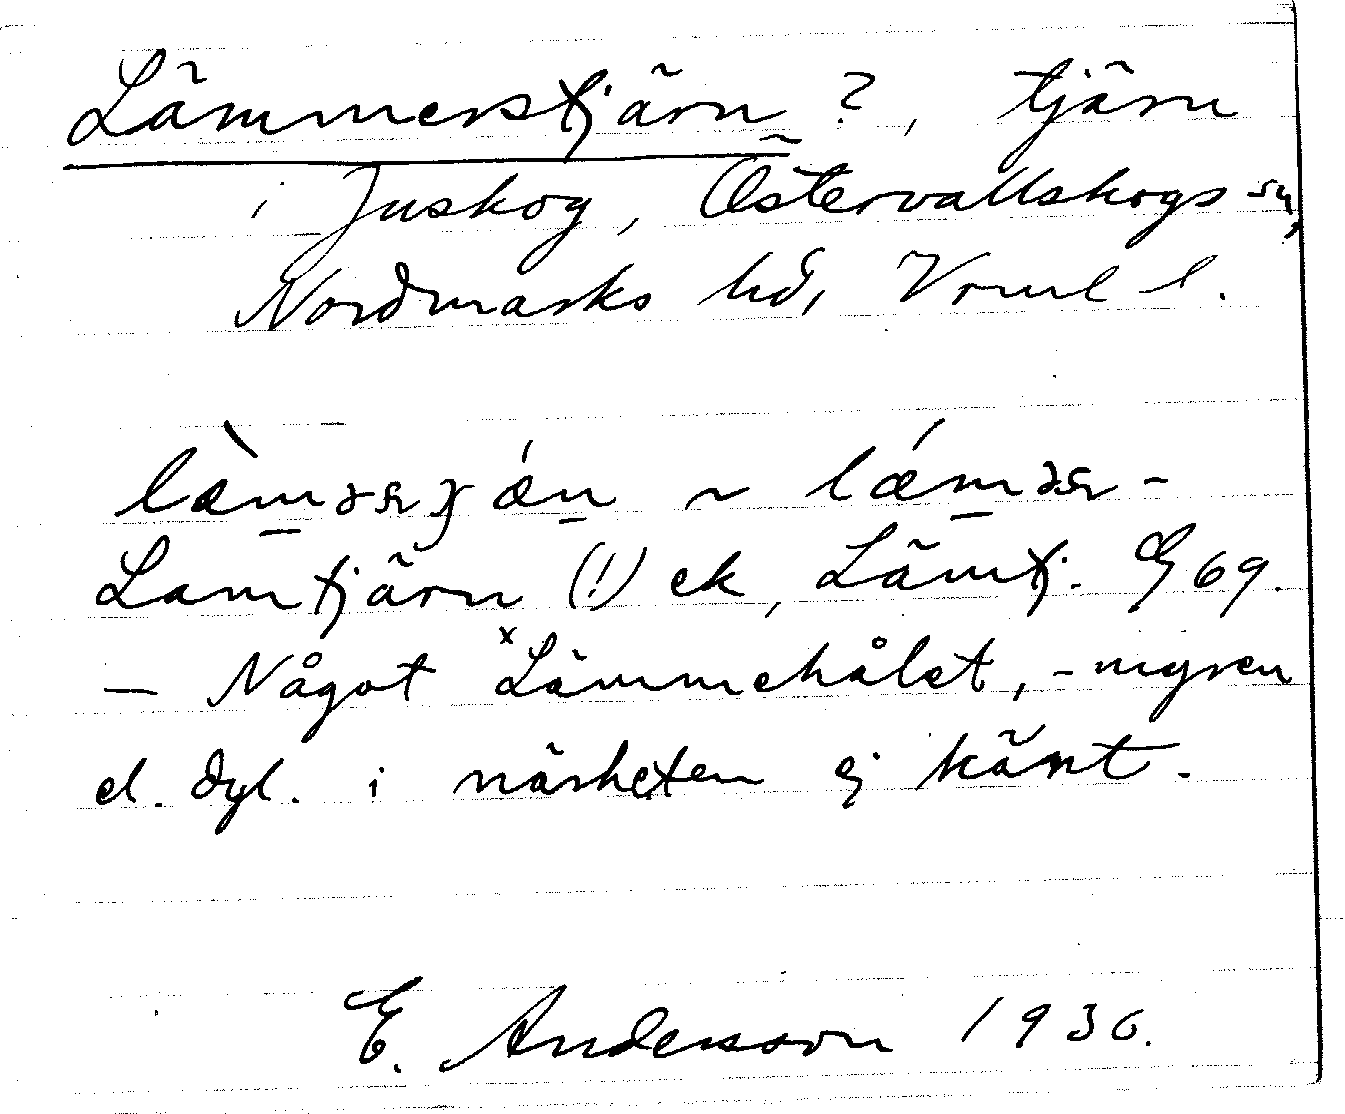 Lämmerstjärn ?, tjärn
i Juskog, Östervallskogs sn,
Nordmarks hd, Vrml l.
Lamtjärn (!) ek, Lämtj. G 69.
— Något ˣLämmehålet, -myren
el. dyl. i närheten ej känt.
E. Andersson 1930.